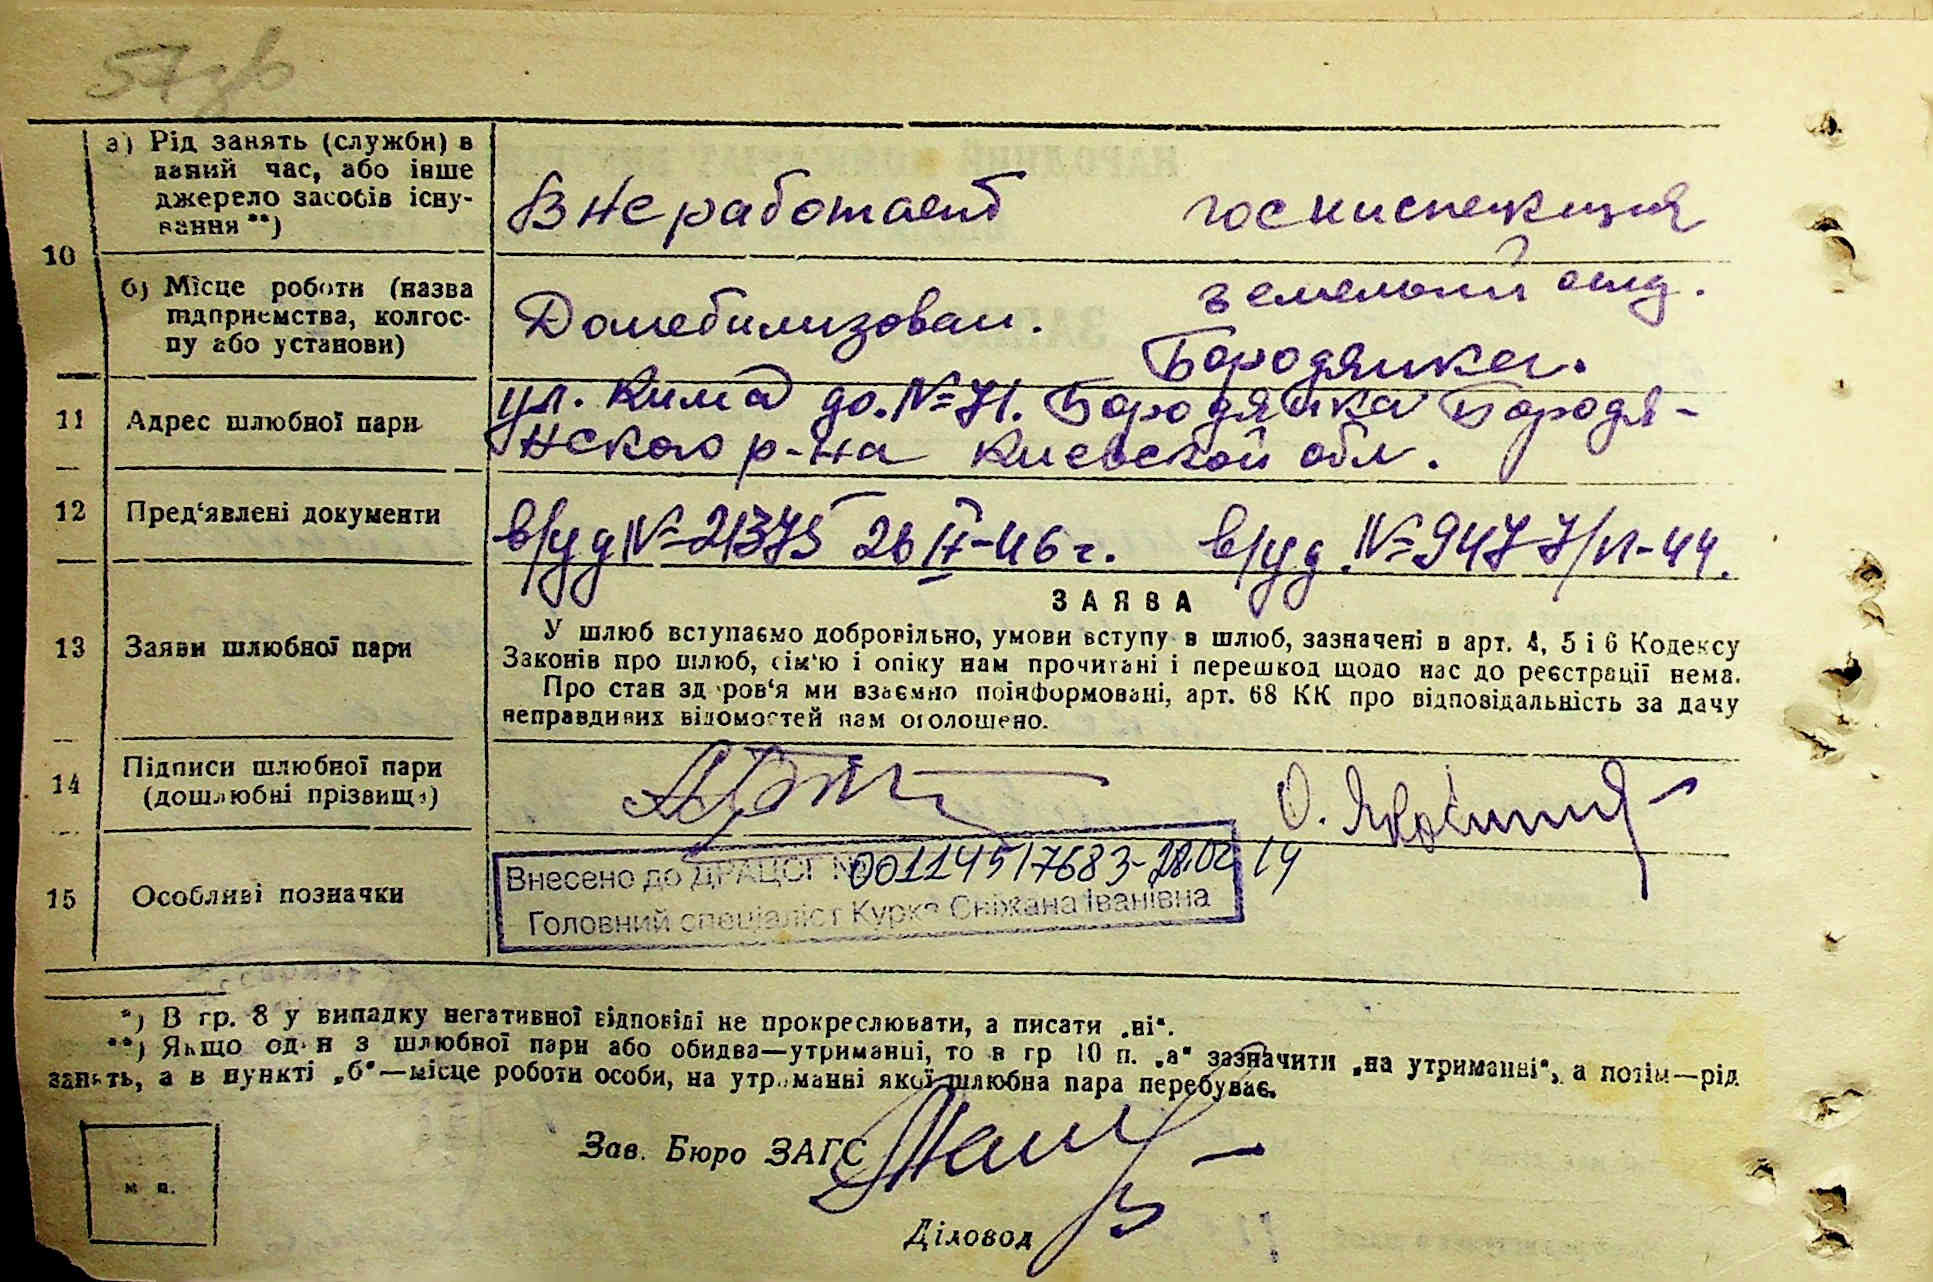 57зв
а) Рід занять (служби) в
даний час, або інше
джерело засобів існу-
вання **)
В не работает
госинспекция
10
б) Місце роботи (назва
підприємства, колгос-
пу або установи)
Домобилизован.
земельный отд.
Бородянка.
11
Адрес шлюбної пари
ул. Кима до. № 71. Бородянка Бородя-
нского р-на Киевской обл.
12
Пред‘явлені документи
в/уд № 21375 26 II-46 г.
в/уд. № 9477/II-44.
13
Заяви шлюбної пари
ЗАЯВА
У шлюб вступаємо добровільно, умови вступу в шлюб, зазначені в арт. 4, 5 і 6 Кодексу
Законів про шлюб, сім‘ю і опіку нам прочитані і перешкод щодо нас до реєстрації нема.
Про стан здоров‘я ми взаємно поінформовані, арт. 68 КК про відповідальність за дачу
неправдивих відомостей нам оголошено.
14
Підписи шлюбної пари
(дошлюбні прізвища)
О.
15
Особливі позначки
Внесено до ДРАЦСГ № 00114517683-28.02.14
Головний спеціаліст Курка Сніжана Іванівна
*) В гр. 8 у випадку негативної відповіді не прокреслювати, а писати „ні“.
**) Якщо один з шлюбної пари або обидва—утриманці, то в гр 10 п. „а“ зазначити „на утриманні“, а потім—рід
занять, а в пункті „б“—місце роботи особи, на утриманні якої шлюбна пара перебуває.
Зав. Бюро ЗАГС
м п.
Діловод